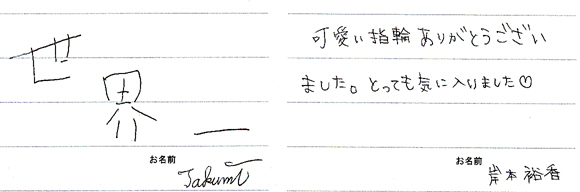 世
界
一
お名前
Takumi
可愛い指輪ありがとうござい
ました。とっても気に入りました♡
お名前
岸本裕香